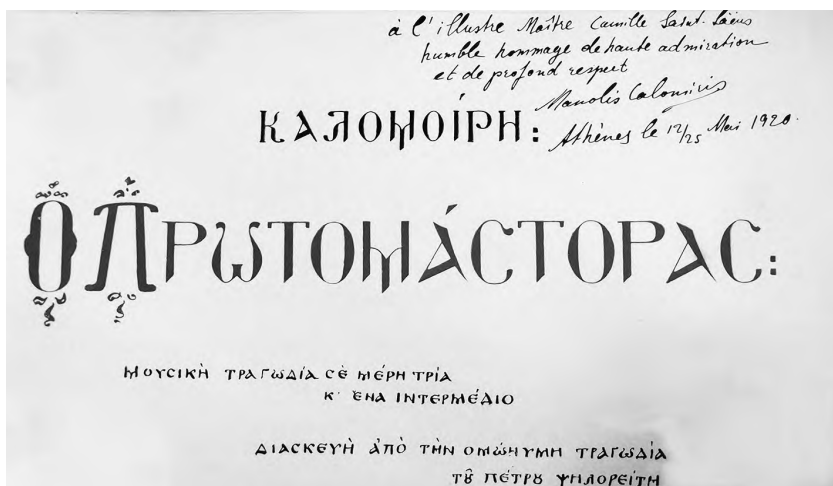 à l'illustre Maître Camille Saint-Saëns
humble hommage de haute admiration
et de profond respect
Manolis Calomiris
Athènes le 12/25 Mai 1920.
ΚΑΛΟΜΟΊΡΗ:
Ὁ ΠΡΩΤΟΜΆΣΤΟΡΑΣ:
ΜΟΥΣΙΚῊ ΤΡΑΓΩΔΊΑ ΣῈ ΜΈΡΗ ΤΡΊΑ
Κ' ἝΝΑ ΙΝΤΕΡΜΈΔΙΟ
ΔΙΑΣΚΕΥῊ ἈΠῸ ΤῊΝ ΟΜΏΝΥΜΗ ΤΡΑΓΩΔΊΑ
ΤΟΥ͂ ΠΈΤΡΟΥ ΨΗΛΟΡΕΊΤΗ